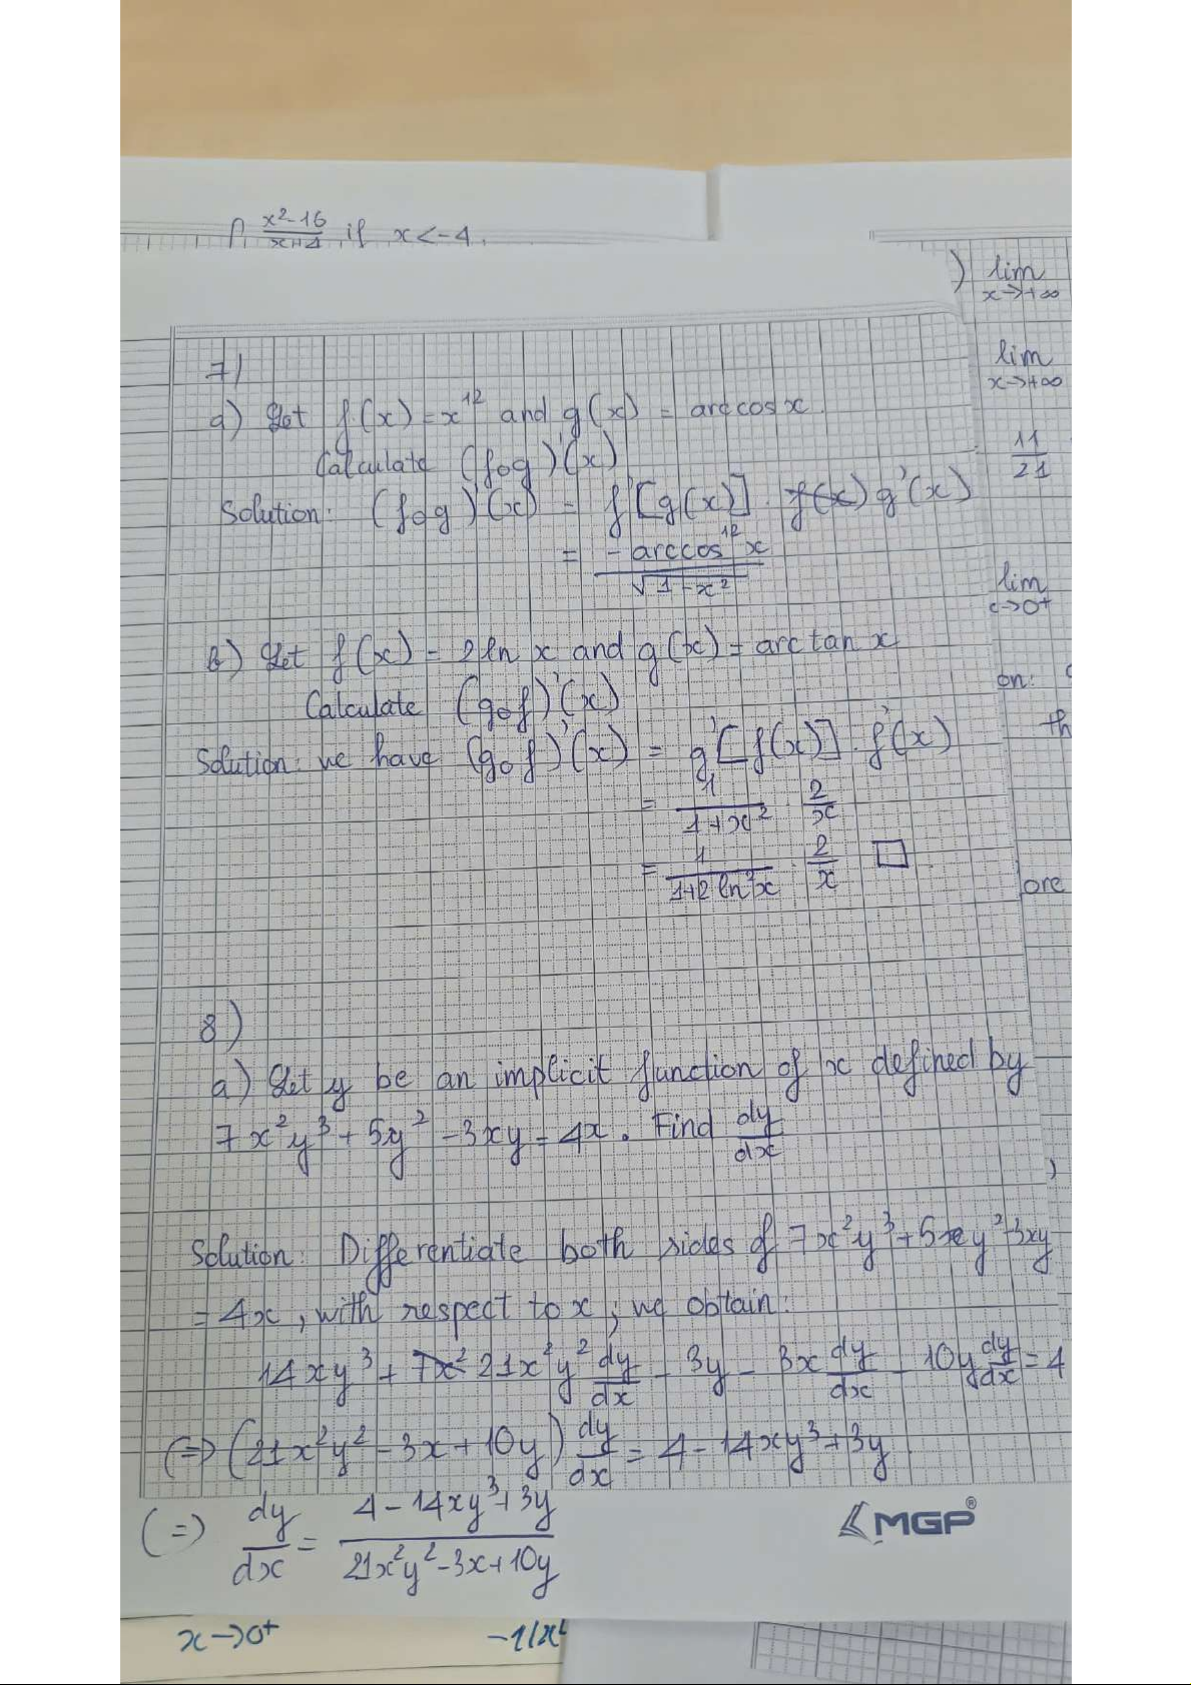 x²-16
x+4 if x<-4.
) lim
x→+∞
lim
x→+∞
11
21
lim
→0⁺
on:
th
ore
7)
a) Let f(x) = x¹² and g(x) = arccos x.
Calculate (fog)'(x)
Solution: (fog)'(x) = f'[g(x)] . g'(x)
= -arccos¹² x
√1-x²
b) Let f(x) = 2 ln x and g(x) = arctan x
Calculate (gof)'(x)
Solution: we have (gof)'(x) = g'[f(x)] . f'(x)
= 1/(1+x²) . 2/x
= 1/(1+2 ln² x) . 2/x □
8)
a) Let y be an implicit function of x defined by
7x²y³ + 5y² - 3xy = 4x. Find dy/dx
Solution: Differentiate both sides of 7x²y³ + 5y² - 3xy
= 4x, with respect to x, we obtain:
14xy³ + 21x²y² dy/dx - 3y - 3x dy/dx + 10y dy/dx = 4
(=) (21x²y² - 3x + 10y) dy/dx = 4 - 14xy³ + 3y
(=) dy/dx = (4 - 14xy³ + 3y)/(21x²y² - 3x + 10y)
MGP®
x→0⁺ -1/x²